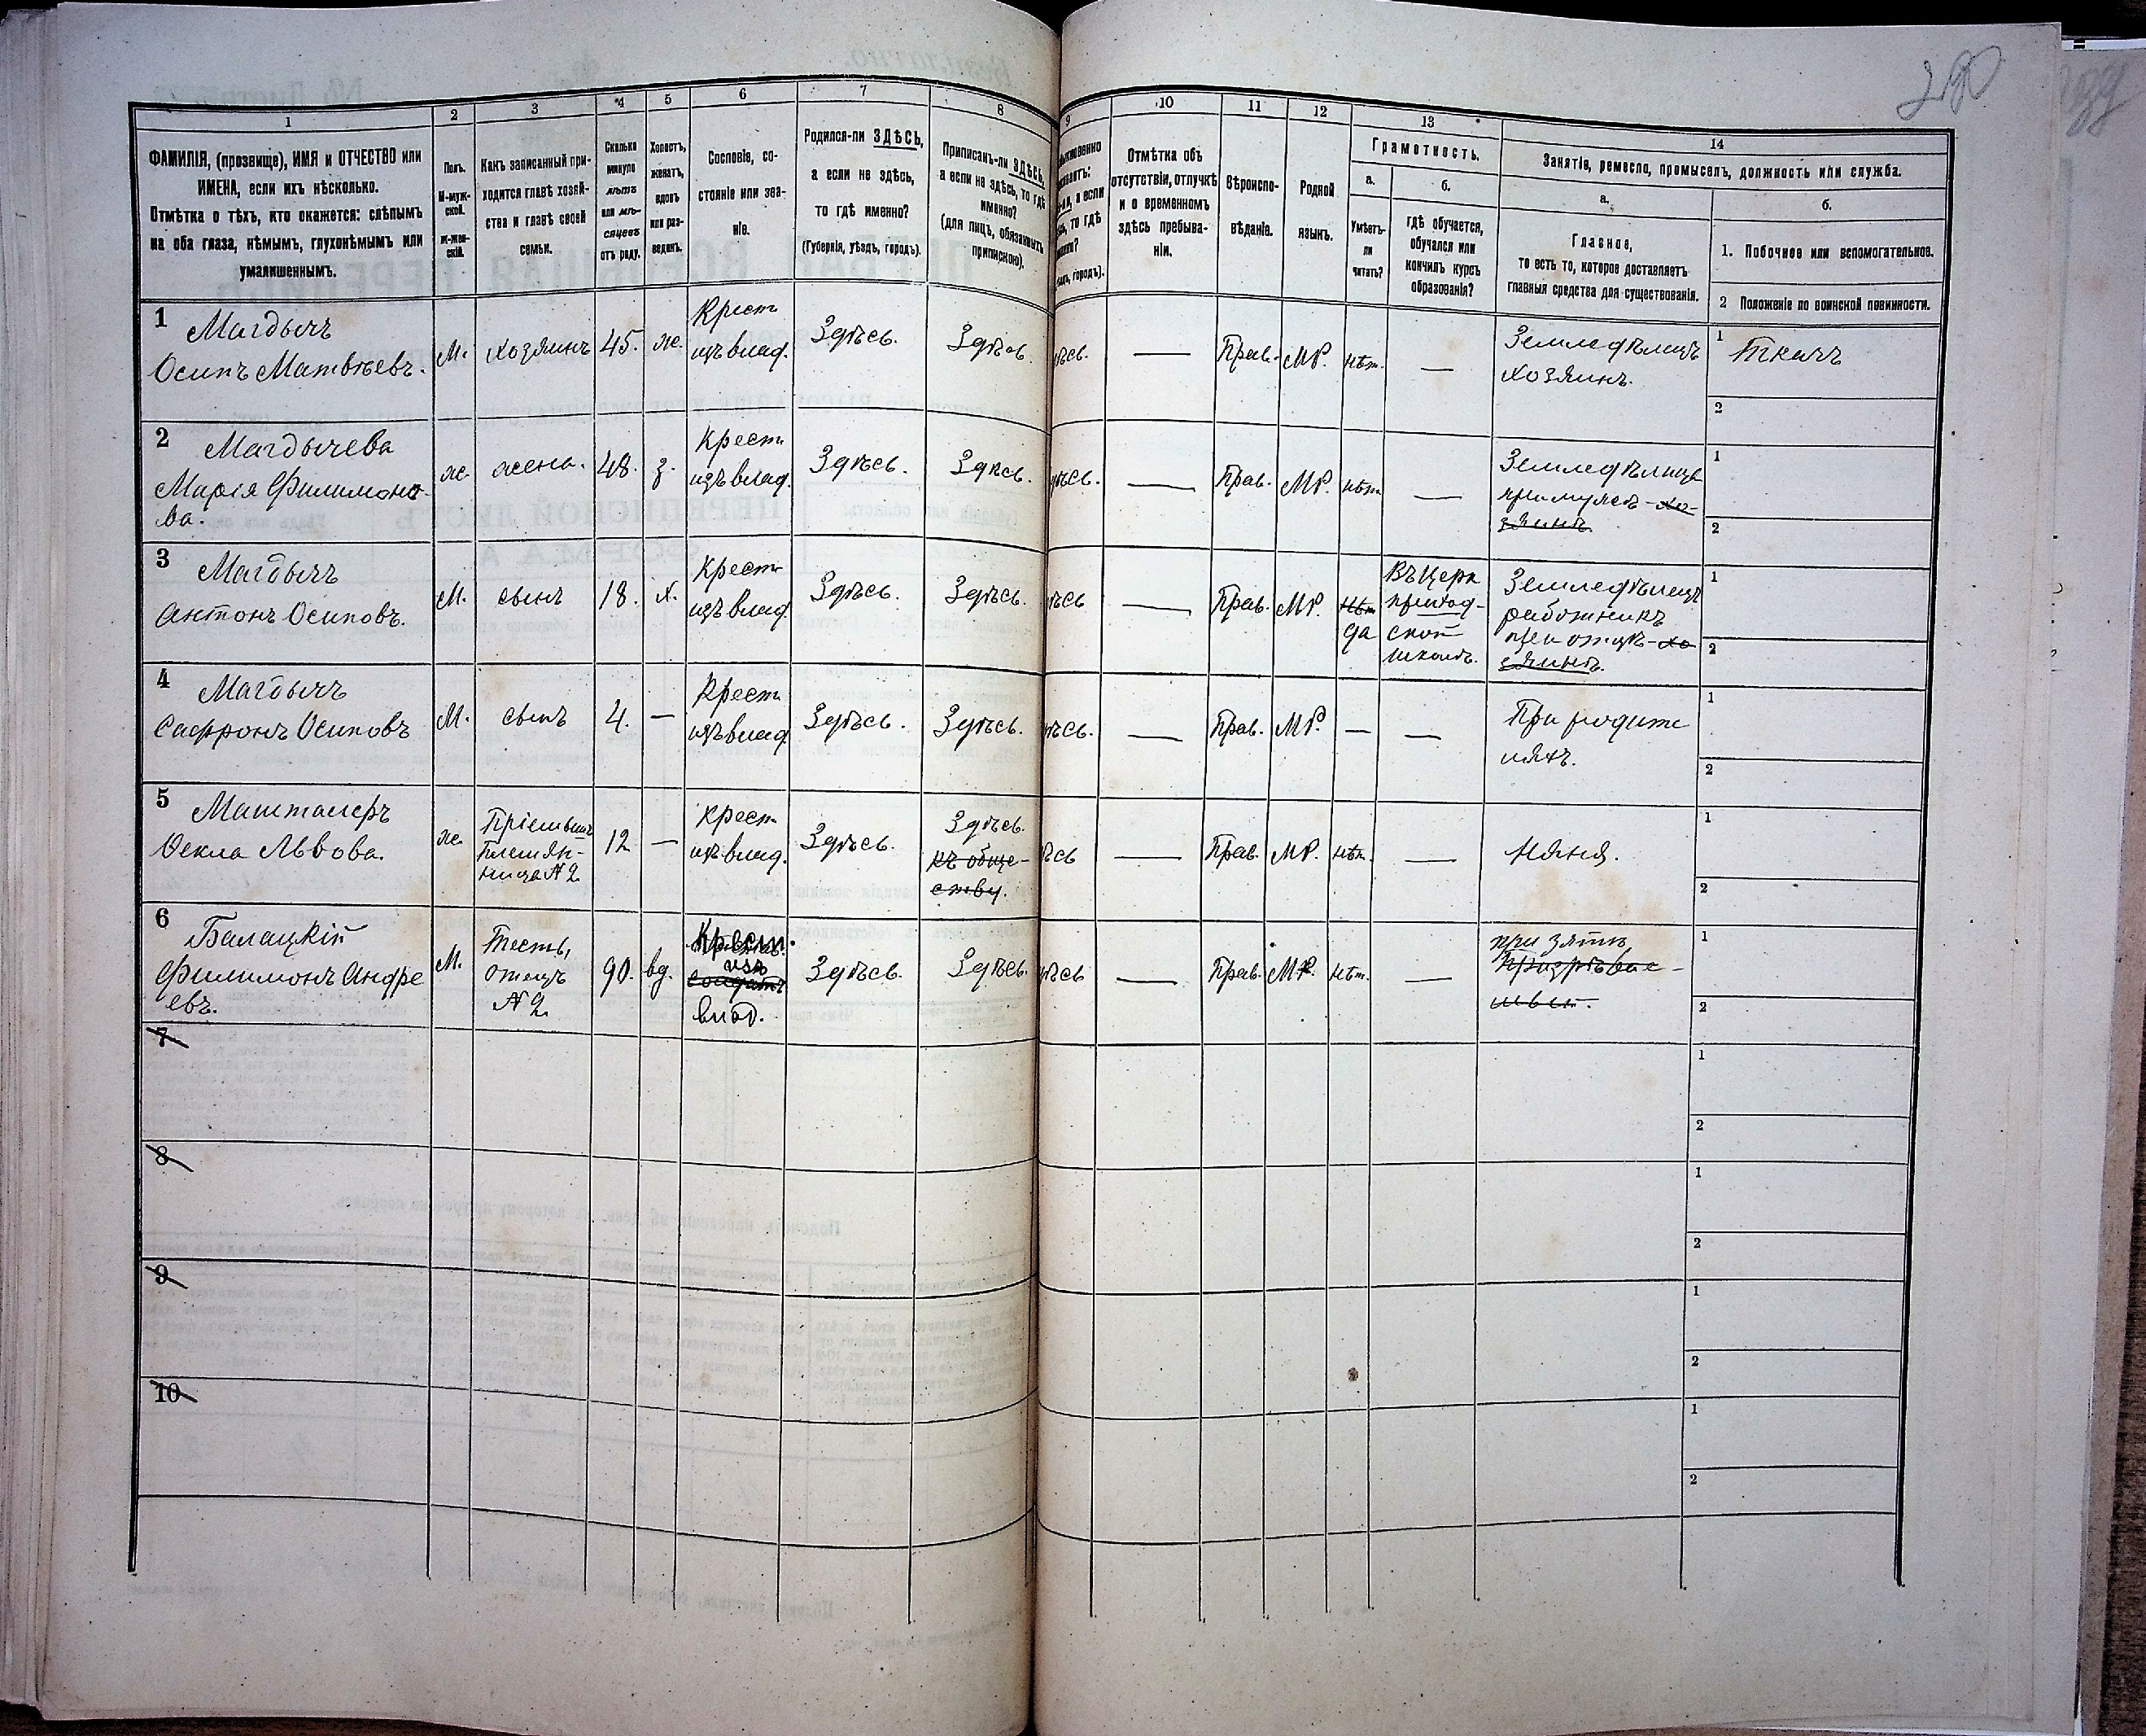 290
1
2
3
4
5
6
7
8
9
10
11
12
13
14
ФАМИЛІЯ, (прозвище), ИМЯ и ОТЧЕСТВО или
ИМЕНА, если ихъ нѣсколько.
Отмѣтка о тѣхъ, кто окажется: слѣпымъ
на оба глаза, нѣмымъ, глухонѣмымъ или
умалишеннымъ.
Полъ.
М-муж-
ской.
ж-жен-
скій.
Какъ записанный при-
ходится главѣ хозяй-
ства и главѣ своей
семьи.
Сколько
минуло
лѣтъ
или мѣ-
сяцевъ
отъ роду.
Холостъ,
женатъ,
вдовъ
или раз-
веденъ.
Сословіе, со-
стояніе или зва-
ніе.
Родился-ли ЗДѢСЬ,
а если не здѣсь,
то гдѣ именно?
(Губернія, уѣздъ, городъ).
Приписанъ-ли ЗДѢСЬ,
а если не здѣсь, то гдѣ
именно?
(для лицъ, обязанныхъ
припискою).
Отмѣтка объ
отсутствіи, отлучкѣ
и о временномъ
здѣсь пребыва-
ніи.
Вѣроиспо-
вѣданіе.
Родной
языкъ.
Грамотность.
а.
б.
Умѣетъ-
ли
читать?
гдѣ обучается,
обучался или
кончилъ курсъ
образованія?
Занятіе, ремесло, промыселъ, должность или служба.
а.
б.
Главное,
то есть то, которое доставляетъ
главныя средства для существованія.
1. Побочное или вспомогательное.
2 Положеніе по воинской повинности.
1 Магдычъ
Осипъ Матвѣевъ.
М.
хозяинъ
45.
ж.
Крест
изъ влад.
Здѣсь.
Здѣсь
ѣсь.
—
Прав.
МР.
нѣт.
—
Земледѣлецъ
хозяинъ.
1 Ткачъ
2
2 Магдычева
Марія Филимоно-
ва.
ж
жена.
48.
з.
Крест
изъ влад.
Здѣсь.
Здѣсь.
ѣсь.
—
Прав.
МР.
нѣт
—
Земледѣлица
при мужѣ - хо-
зяинѣ.
1
2
3 Магдычъ
Антонъ Осиповъ.
М.
сынъ
18.
х.
Крест
изъ влад
Здѣсь.
Здѣсь.
ѣсь
—
Прав.
МР.
нѣт
да
Въ церк
приход-
ской
школѣ.
Земледѣлецъ
работникъ
при отцѣ - хо
зяинѣ.
1
2
4 Магдычъ
Сафронъ Осиповъ
М.
сынъ
4.
—
Крест
изъ влад
Здѣсь.
Здѣсь.
ѣсь.
—
Прав.
МР.
—
—
При родите
ляхъ.
1
2
5 Машталеръ
Ѳекла Львова.
ж.
Пріемыш
Племян-
ница №2
12
—
крест
изъ влад.
Здѣсь.
Здѣсь.
къ обще-
ству.
ѣсь
—
Прав.
МР.
нѣт.
—
Няня.
1
2
6 Балацкій
Филимонъ Андре
евъ.
М.
Тесть,
отецъ
№2
90.
вд.
Крест.
изъ
солдатъ
влад.
Здѣсь.
Здѣсь.
ѣсь
—
Прав.
МР.
нѣт.
—
при зятѣ
1
2
7
1
2
8
1
2
9
1
2
10
1
2